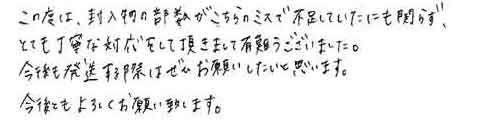 この度は、封入物の部数がこちらのミスで不足していたにも関らず、
とても丁寧な対応をして頂きまして有難うございました。
今後も発送する際はぜひお願いしたいと思います。
今後ともよろしくお願い致します。